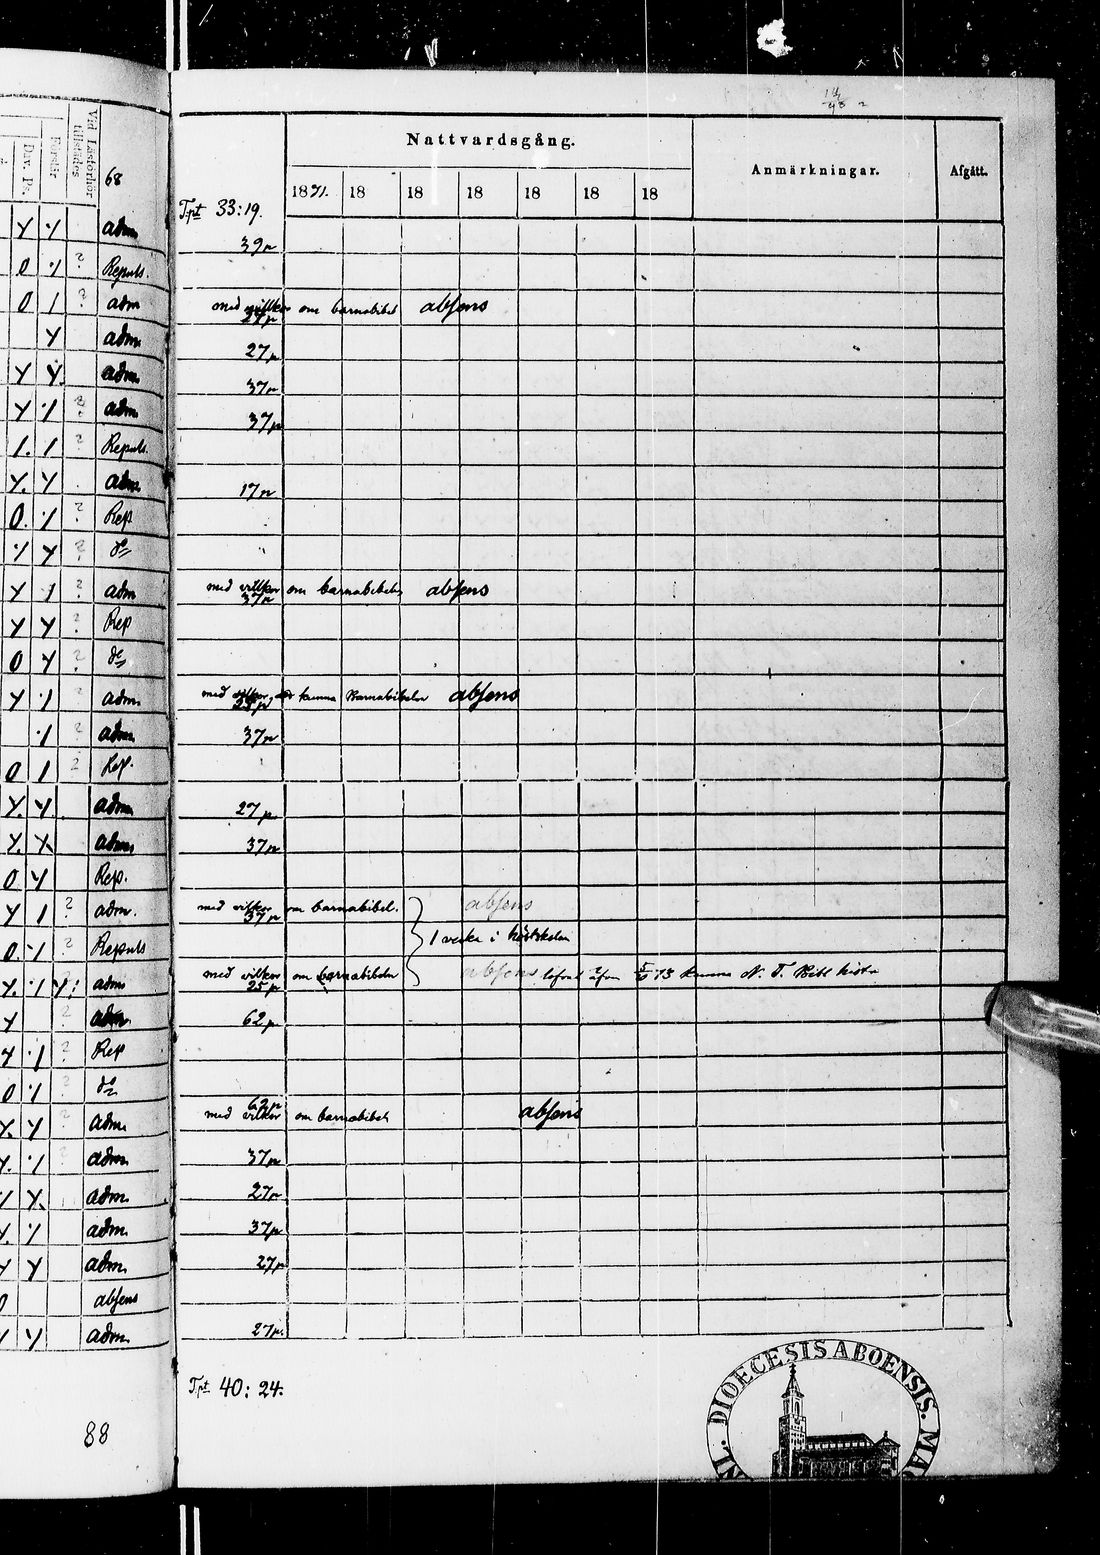 Nattvardsgång.
Anmärkningar.
Afgått.
Vid Läsförhör tillstädes
Förstår
Dav. Ps.
68
1871. 18 18 18 18 18 18
Tpt 33:19.
Y Y adm 39 p
0 ·/. ? Repuls.
0 1 ? adm med villkor om barnabibel absens
27 p
Y adm 27 p
Y Y adm. 37 p
Y ·1 ? adm 37 p
1. 1 ? Repuls.
Y. Y adm 17 p
0. ·1 ? Rep
·/. Y ? do
Y 1 ? adm med vilkor om barnabibeln absens
37 p
Y Y ? Rep
0 Y ? do
Y ·1 ? adm. med kunna Barnabibeln absens
·1 ? adm. 37 p
0 1 ? Rep.
Y. Y adm 27 p.
Y. Y. adm. 37 p
0 Y Rep.
Y 1 ? adm. med vilkor om barnabibel. absens
37 p
0. ·1 ? Repuls 1 vecka i
Y. ·1 Y: adm med vilkor om barnabibeln absens 73 kunna N. T. Bibl hist
25 p
Y ? adm. 62 p
Y ·1 ? Rep
0 ·1 ? do
62 p
Y. Y ? adm. med vilkor om barnabibel absens
Y. ·1 ? adm 37 p
Y. adm. 27 p
Y. ·/. adm. 37 p
Y Y adm. 27 p
0 absens
Y Y adm. 27 p.
Tpt 40:24.
88
DIOECESIS ABOENSIS.